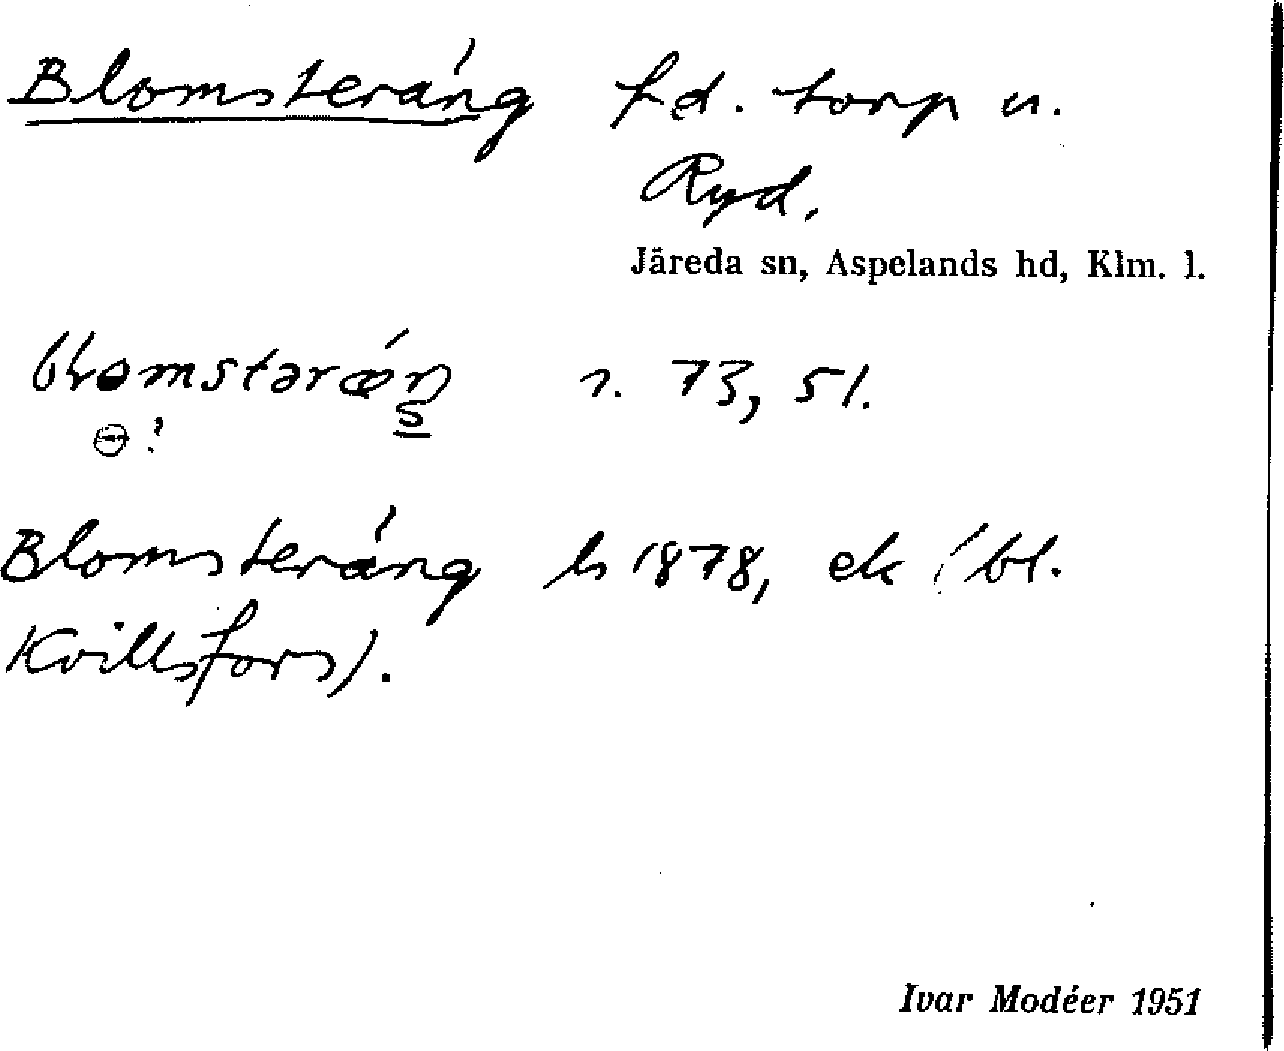 Blomsteräng fd. torp u.
Ryd.
Järeda sn, Aspelands hd, Klm. l.
73, 51.
Blomsteräng h 1878, ek (bl.
Kvillsfors).
Ivar Modéer 1951